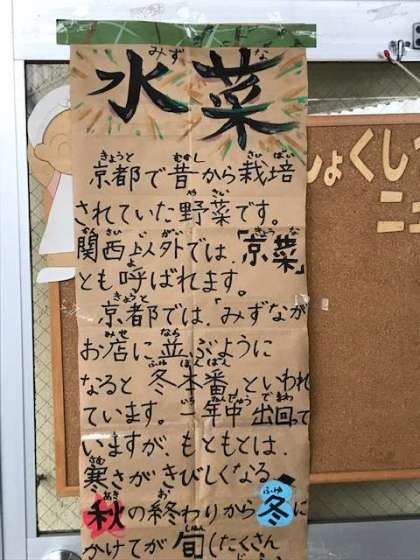 みず な
水菜
きょうと むかし さい ばい
京都で昔から栽培
や さい
されていた野菜です。
かん さい い がい きょう な
関西以外では、「京菜」
よ
とも呼ばれます。
きょうと
京都では、「みずなが
みせ なら
お店に並ぶように
ふゆ ほん ばん
なると冬本番」といわれ
いちねんじゅう で まわ
ています。一年中出回って
いますが、もともとは、
さむ
寒さがきびしくなる
あき お ふゆ
秋の終わりから冬に
しゅん
かけてが旬(たくさん
しょくし
ニ